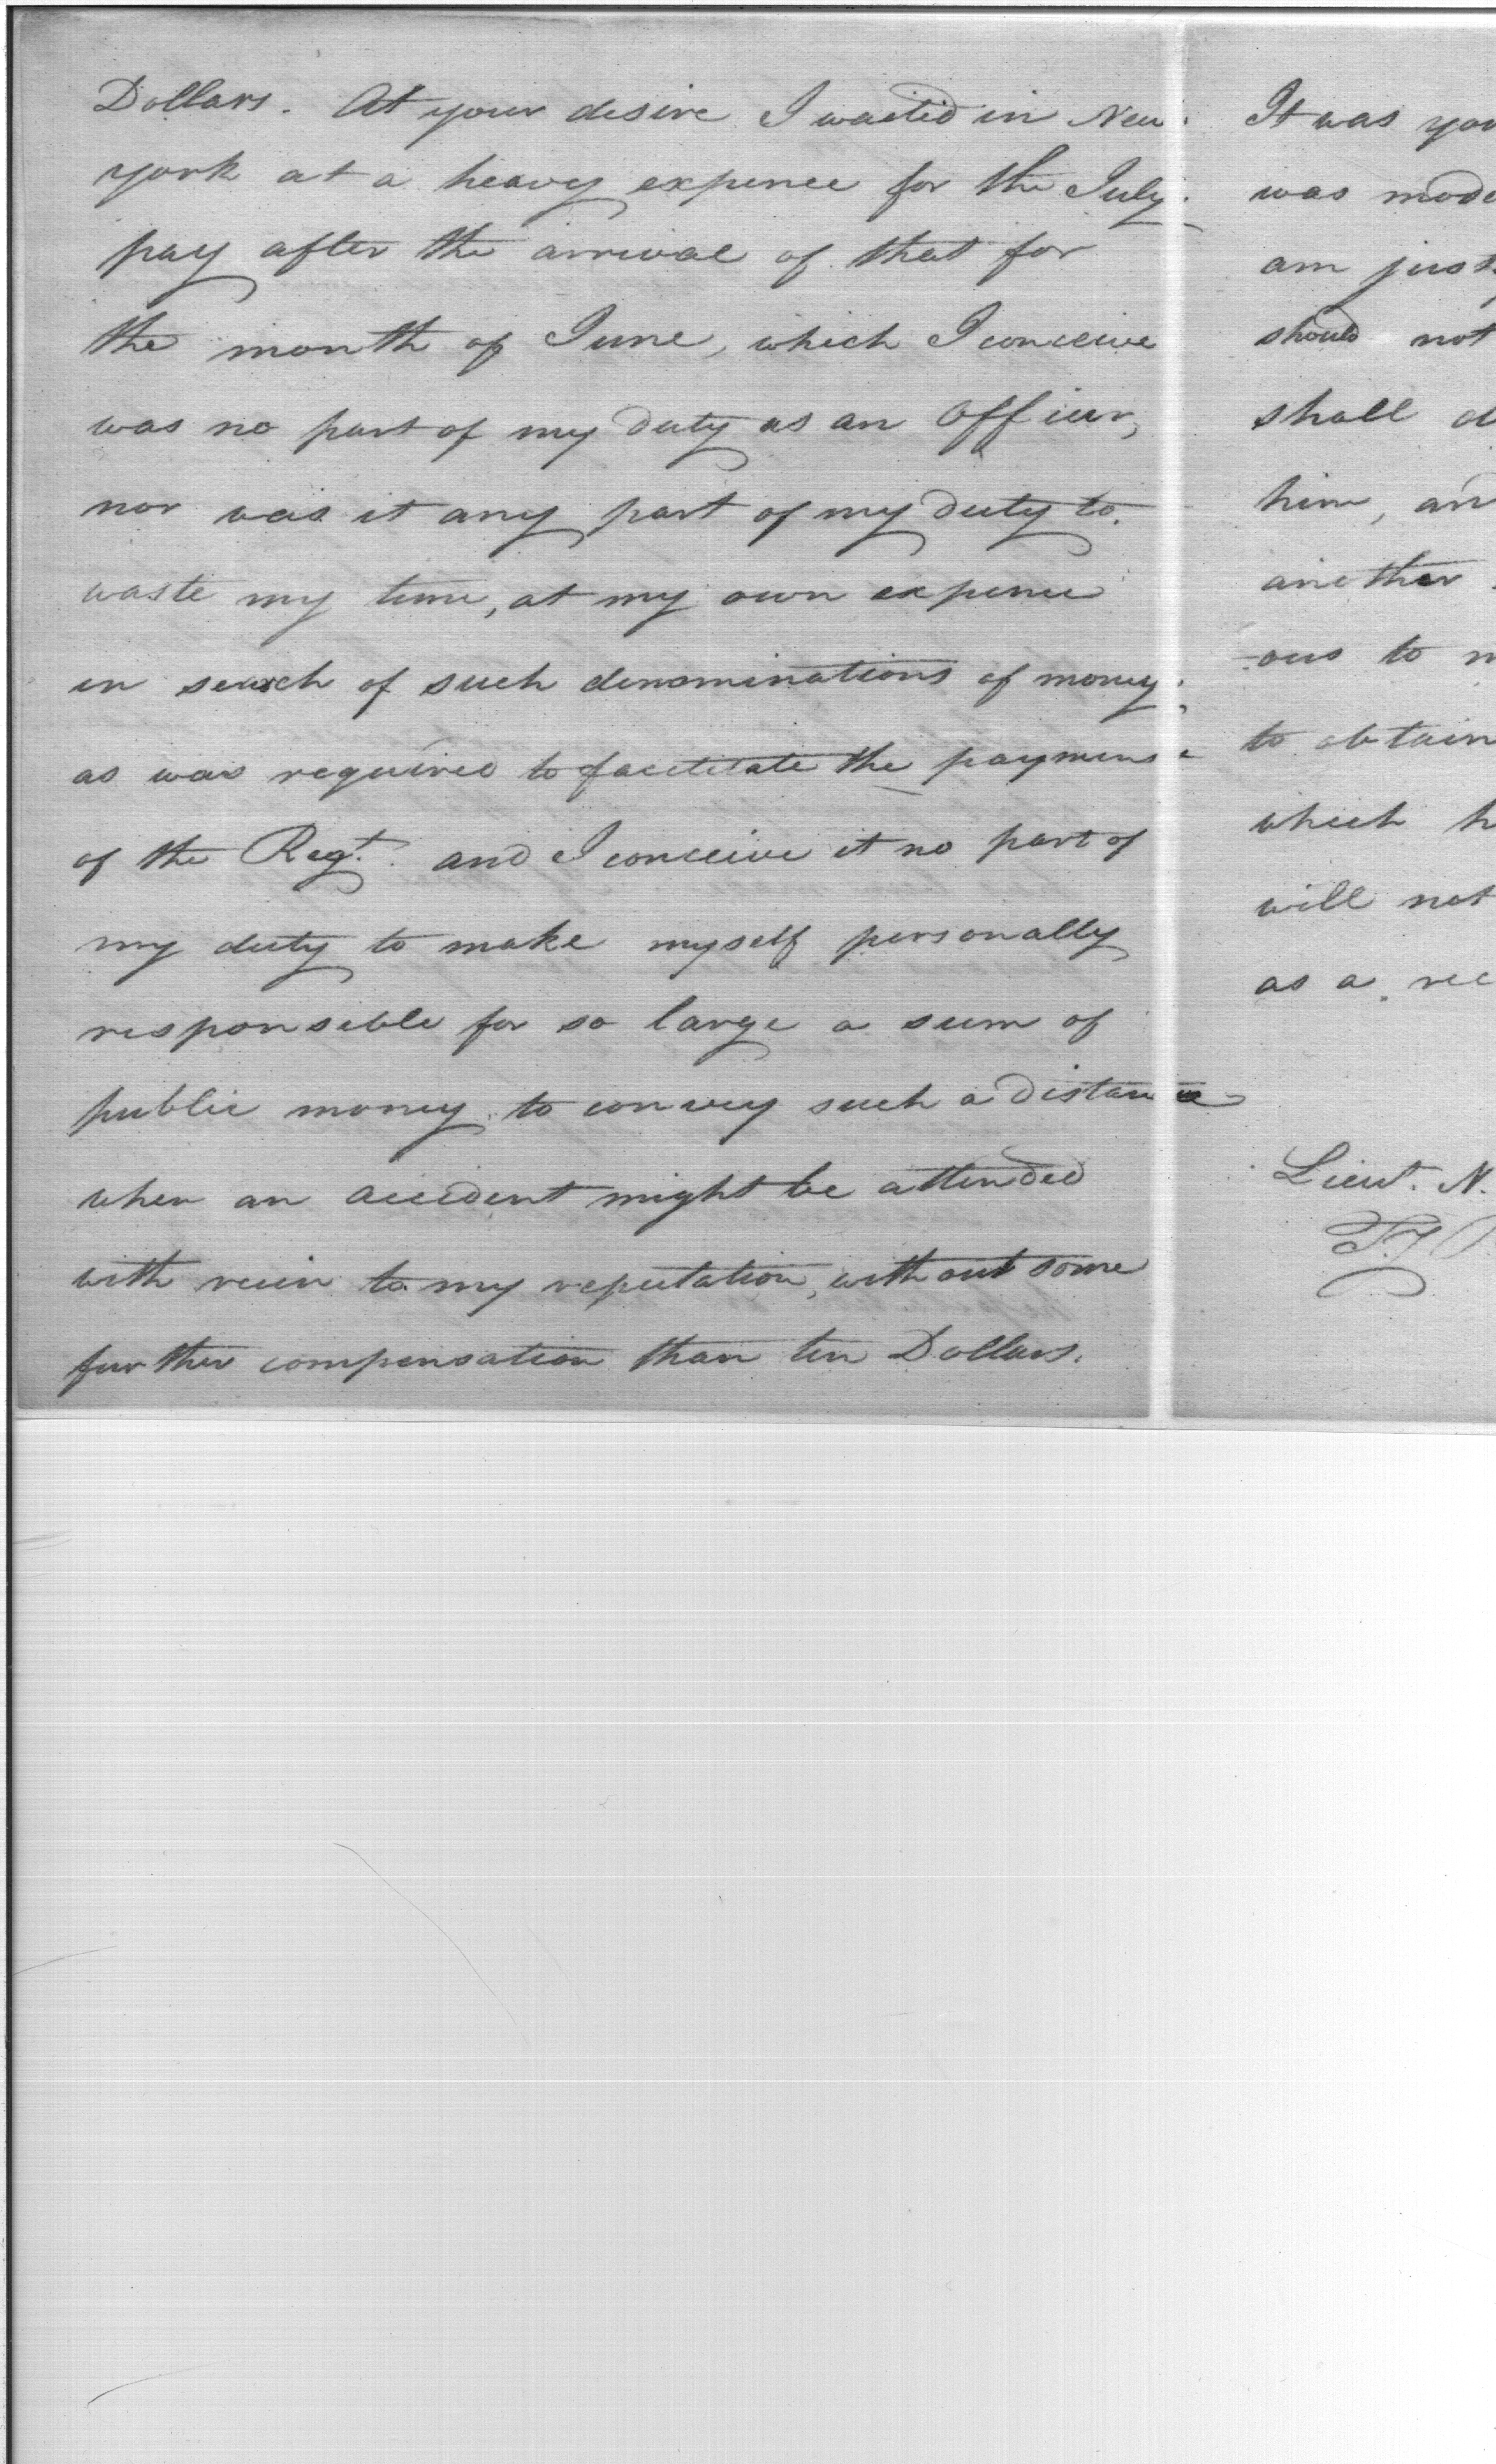 Dollars. At your desire I waited in New
york at a heavy expence for the July
pay after the arrival of that for
the month of June, which I conceive
was no part of my duty as an Officer,
nor was it any part of my duty to
waste my time, at my own expence
in search of such denominations of money,
as was required to facilitate the payment
of the Regt. and I conceive it no part of
my duty to make myself personally
responsible for so large a sum of
public money to convey such a distance
when an accident might be attended
with ruin to my reputation, without some
further compensation than ten Dollars.
It was you
was made
am just
should not
shall d
him, an
another
ous to m
to obtain
which h
will not
as a rec
Lieut. N.